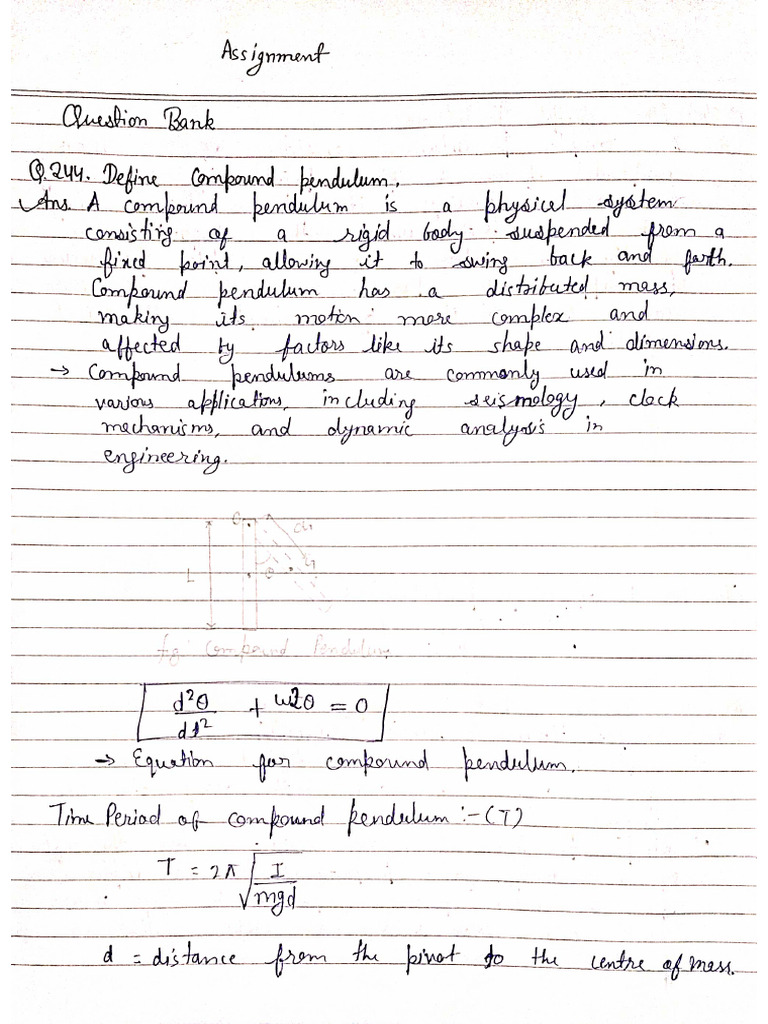 Assignment
Question Bank
Q.244. Define compound pendulum.
Ans. A compound pendulum is a physicel system
consisting of a rigid body suspended from a
fixed point, allowing it to swing back and forth.
Compound pendulum has a distributed mass,
making its motion more complex and
affected by factors like its shape and dimensions.
→ Compound pendulums are commonly used in
various applications, including seismology, clock
mechanisms, and dynamic analysis in
engineering.
L
θ
fig: Compound Pendulum
d²θ/dt² + ω²θ = 0
→ Equation for compound pendulum.
Time Period of compound pendulum :- (T)
T = 2π √(I/mgd)
d = distance from the pivot to the centre of mass.